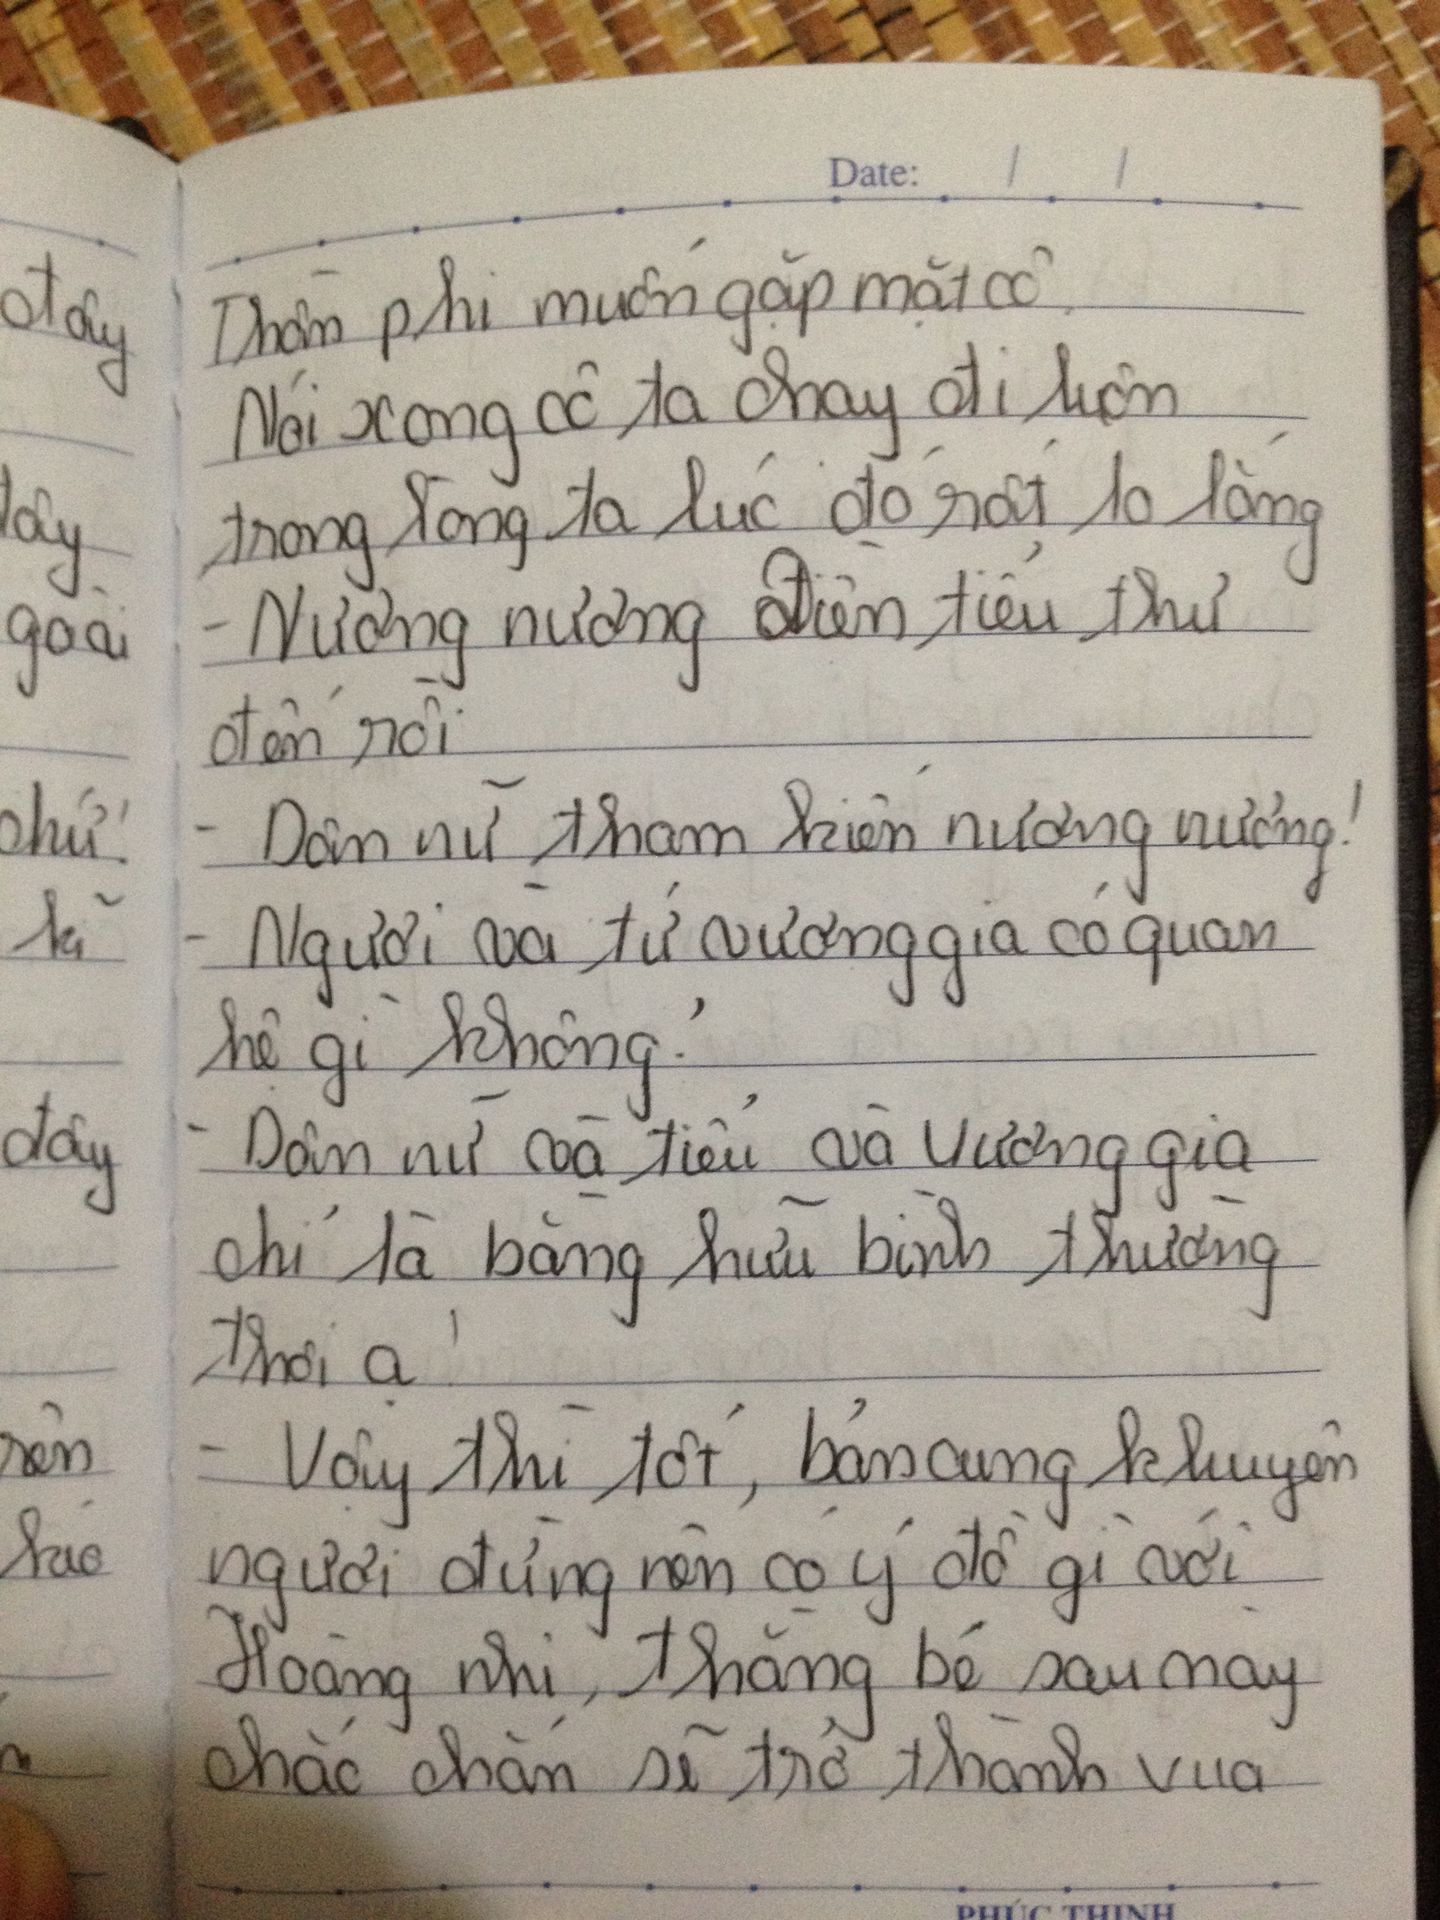 Date: / /
Thần phi muốn gặp mặt cô
Nói xong cô ta chạy đi luôn
trong lòng ta lúc đó rất lo lắng
- Nương nương Điền tiểu thư
đến rồi
- Dân nữ tham kiến nương nương!
- Ngươi và tứ vương gia có quan
hệ gì không?
- Dân nữ và tiểu và Vương gia
chỉ là bằng hữu bình thường
thôi ạ!
- Vậy thì tốt, bản cung khuyên
ngươi đừng nên có ý đồ gì với
Hoàng nhi, thằng bé sau này
chắc chắn sẽ trở thành vua
PHÚC THỊNH
đây
đấy
goài
chứ!
kĩ
đây